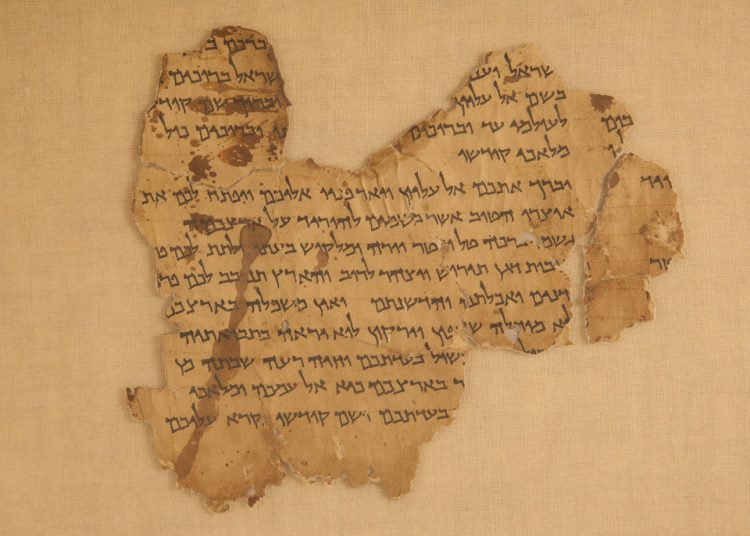 ברכם ב
שראל וענ שראל ברוכים
בשם אל עליון וברוך שם קודש
לעולמי עד וברוכים וברוכים כול
מלאכי קודשו
יברך אתכם אל עליון ויאר פניו אליכם ויפתח לכם את
אוצרו הטוב אשר בשמים להוריד על ארצכמה
גשמי ברכה טל ומטר יורה ומלקוש בעתו ולתת לכם פר
בות דגן תירוש ויצהר לרוב והארץ תנובב לכם פרי
דנים ואכלתם והדשנתם ואין משכלה בארצכם
לא מוחלה שדפון וירקון לוא יראה בתבואתיה
שול בעדתכם וחיה רעה שבתה מן
ר בארצכם כיא אל עמכם ומלאכי
בעדתכם ושם קודשו נקרא עליכם